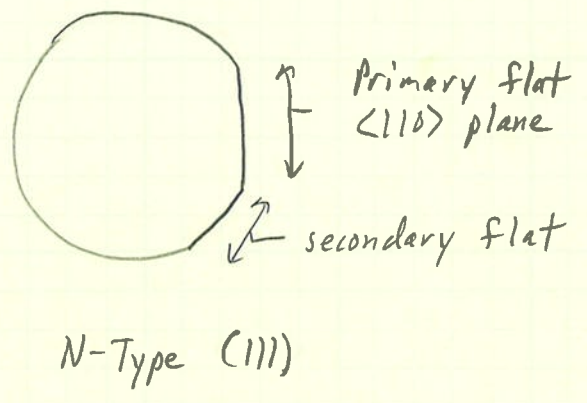 Primary flat
<110> plane
secondary flat
N-Type (111)